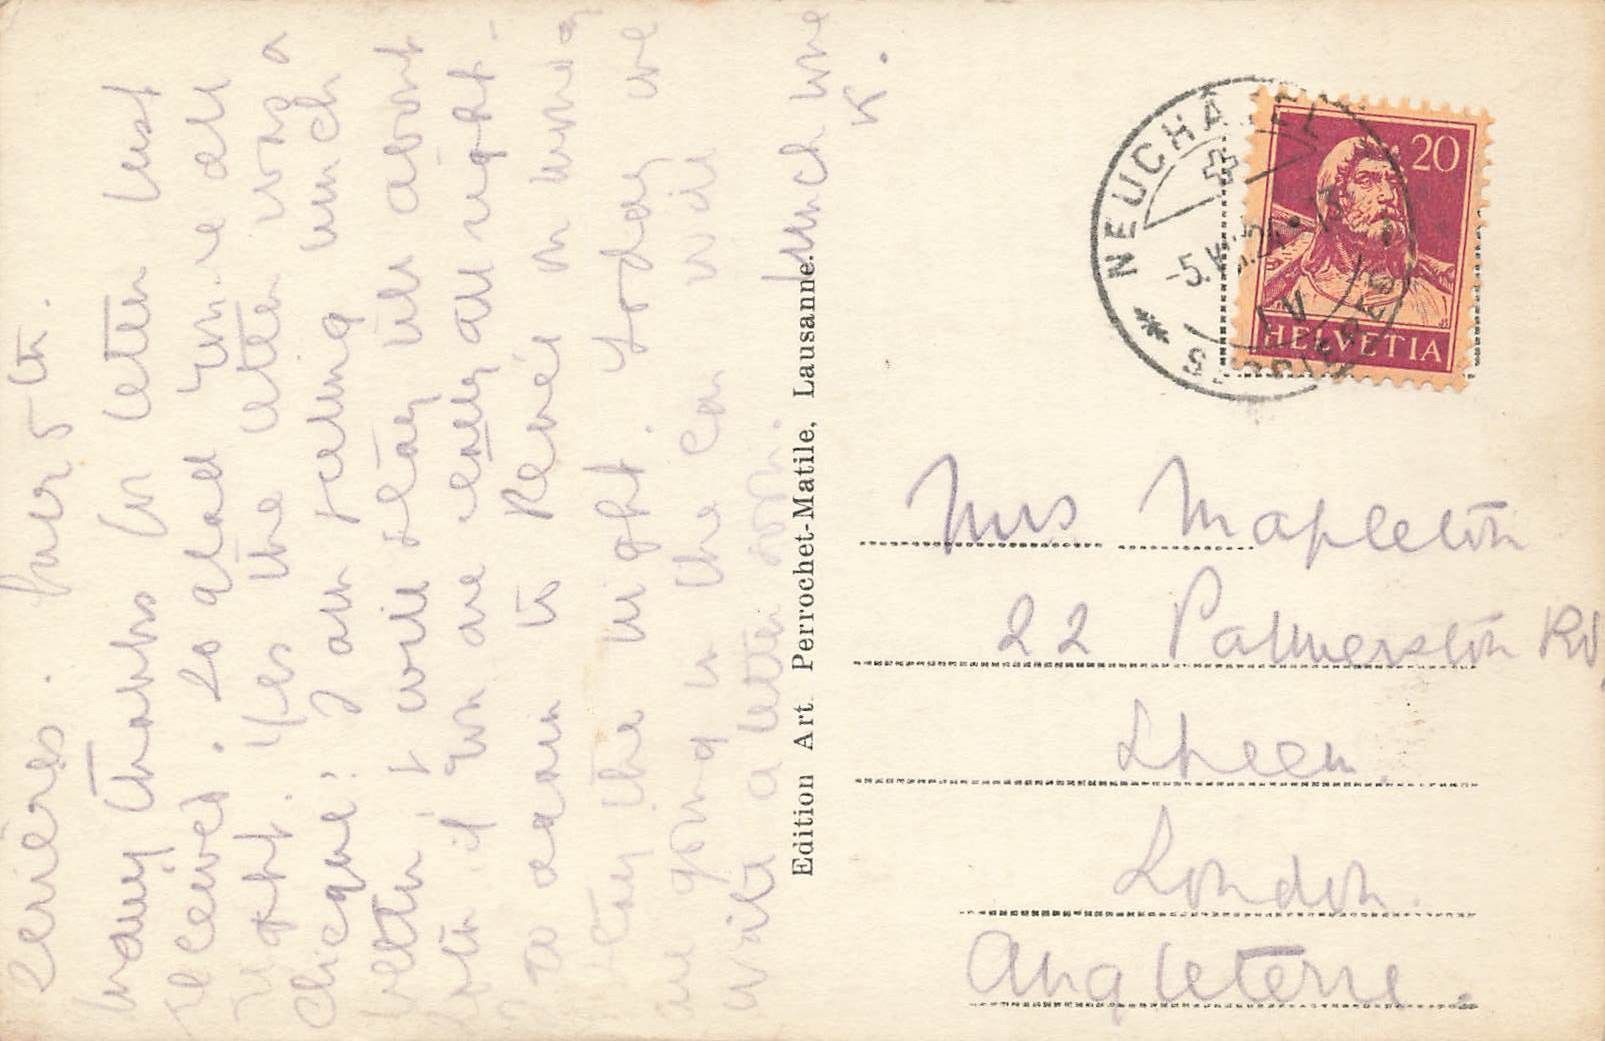 Serrières. June 5th.
Many thanks for letter just
received. So glad you're all
right. Yes the letter was a
cheque! I am feeling much
better, & will stay till about
if you are all right.
again to René's
stay the night. Today we
are going in the car will
write a letter soon. Much love
K.
Edition Art Perrochet-Matile, Lausanne.
NEUCHÂTEL
SERRIÈRES
20
HELVETIA
Mrs Mapleton
22 Palmerston Rd,
Sheen
London.
Angleterre.